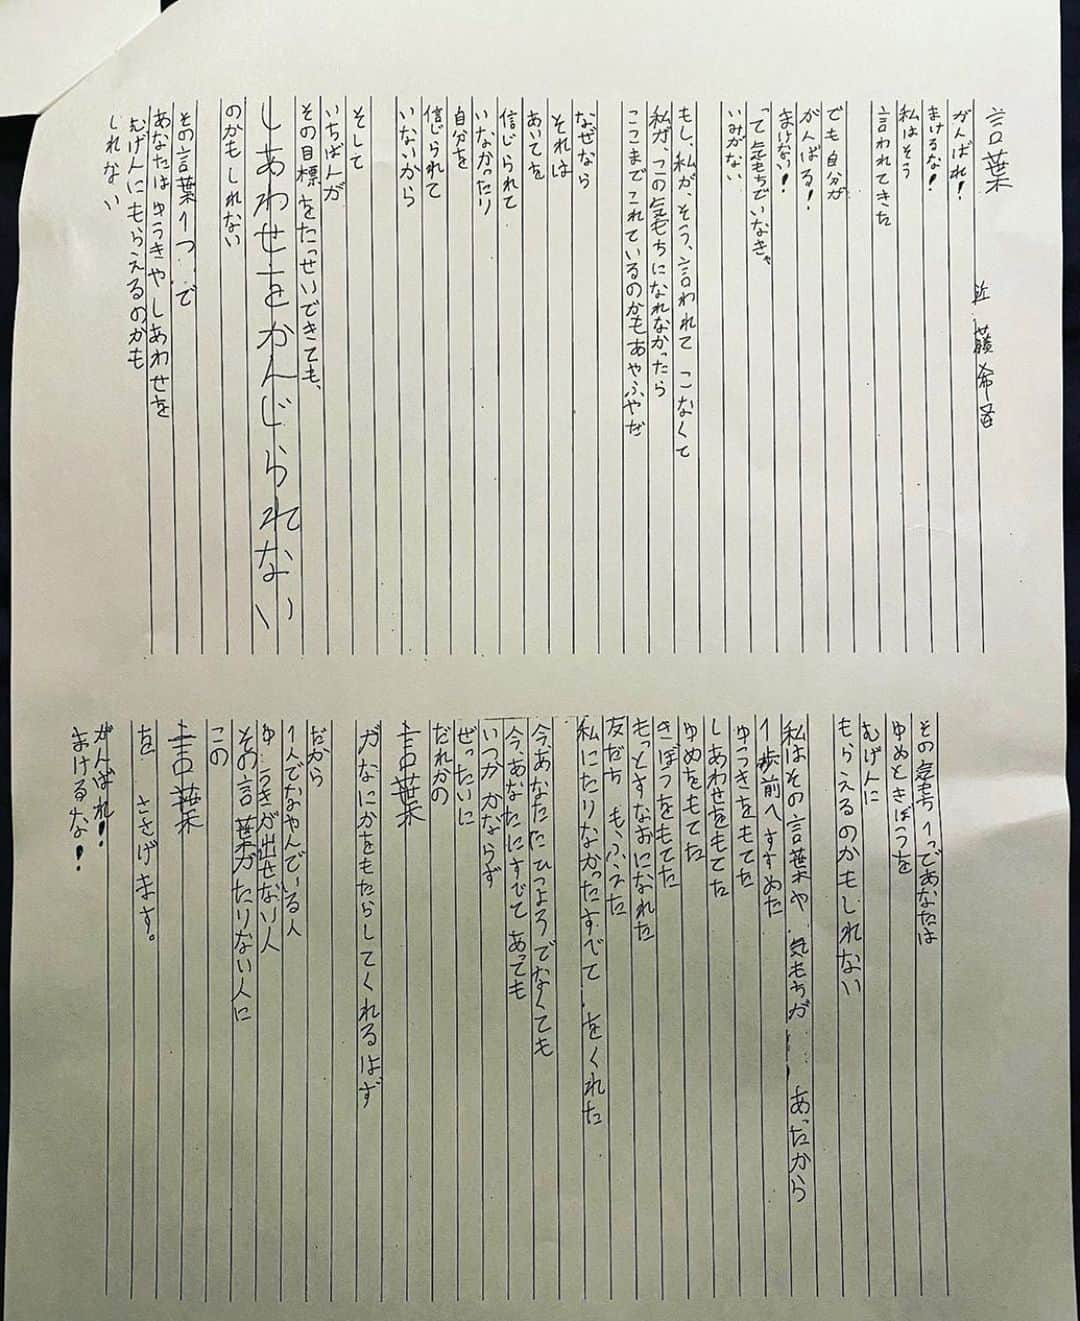 言葉
近藤希苗
がんばれ!
まけるな!
私はそう
言われてきた
でも自分が
がんばる!
まけない!
って気もちでいなきゃ
いみがない
もし、私が、そう、言われて こなくて
私が、この気もちになれなかったら
ここまでこれているのかもあやふやだ
なぜなら
それは
あいてを
信じられて
いなかったり
自分を
信じられて
いないから
そして
いちばんが
その目標をたっせいできても、
しあわせをかんじられない
のかもしれない
その言葉1つで
あなたは ゆうきやしあわせを
むげんにもらえるのかも
しれない
その気もち1つであなたは
ゆめときぼうを
むげんに
もらえるのかもしれない
私はその言葉や 気もちが あったから
1歩前へすすめた
ゆうきをもてた
しあわせをもてた
ゆめをもてた
きぼうをもてた
もっとすなおになれた
友だちも、ふえた
私にたりなかったすべてをくれた
今あなたにひつようでなくても
今、あなたにすべてあっても
いつかかならず
ぜったいに
だれかの
言葉
がなにかをもたらしてくれるはず
だから
1人でなやんでいる人
ゆうきが出せない人
その言葉がたりない人に
この
言葉
を ささげます。
がんばれ!
まけるな!